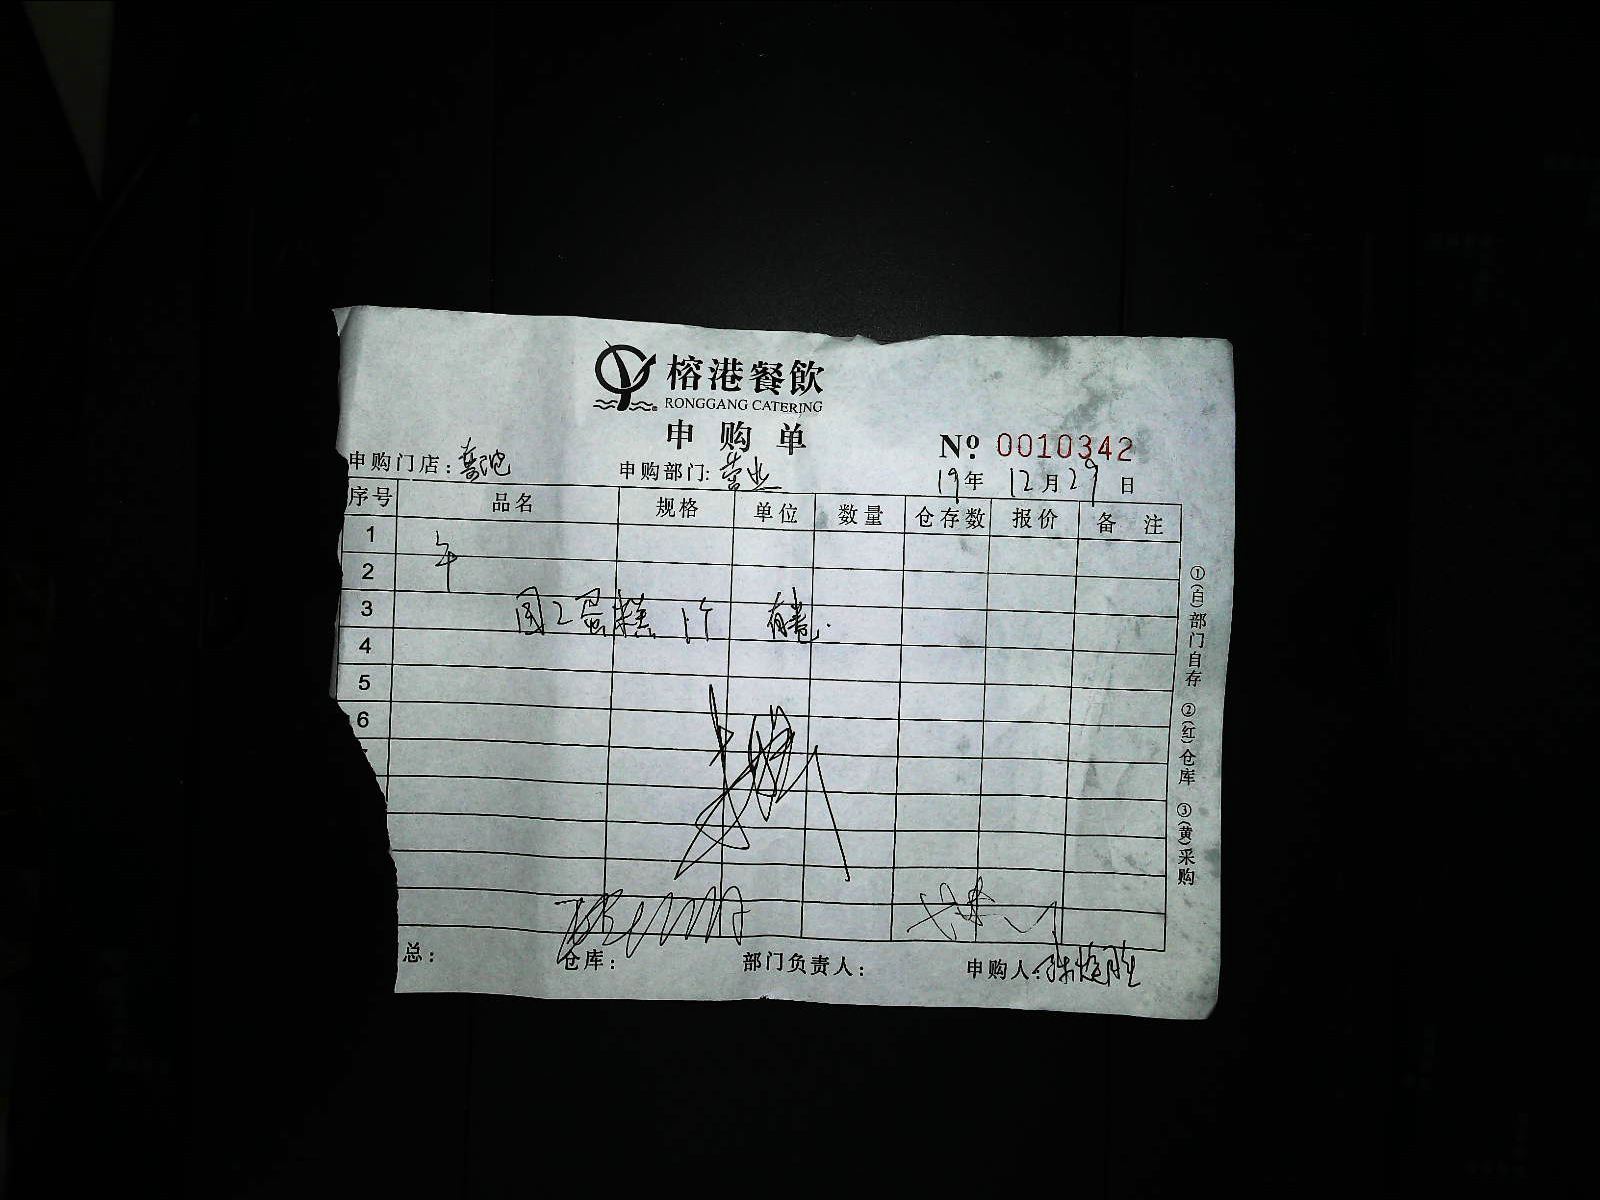 榕港餐飲
RONGGANG CATERING
申购单
№ 0010342
申购门店: 申购部门: 营业 19年 12月 29日
序号 品名 规格 单位 数量 仓存数 报价 备注
1
2 午
3 蛋糕 1个
4
5
6
总: 仓库: 部门负责人: 申购人:
①(白)部门自存 ②(红)仓库 ③(黄)采购